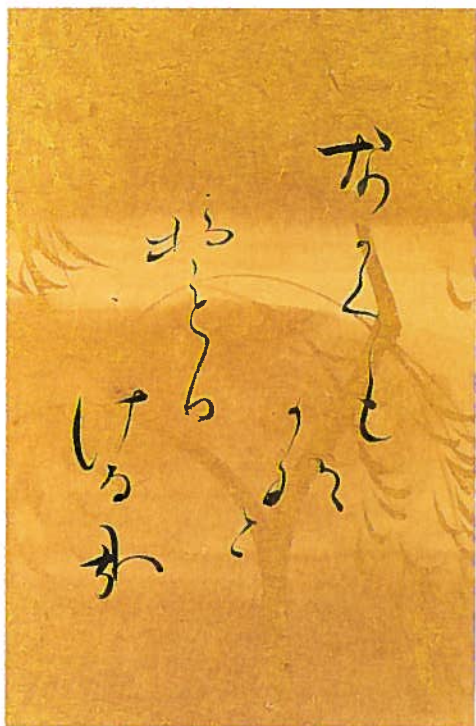 なかくも
かなと
おもひ
ける哉